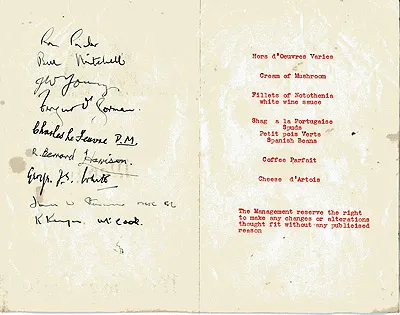 Ron Pinder
Bill Mitchell
J W Young
Fergus O'Gorman.
Charles Le Feuvre P.M.
R. Bernard Harrison.
George J.S. White
W
McCook.
Hors d'Oeuvres Varies
Cream of Mushroom
Fillets of Notothenia
white wine sauce
Shag a la Portugaise
Spuds
Petit pois Verts
Spanish Beans
Coffee Parfait
Cheese d'Artois
The Management reserve the right
to make any changes or alterations
thought fit without any publicised
reason